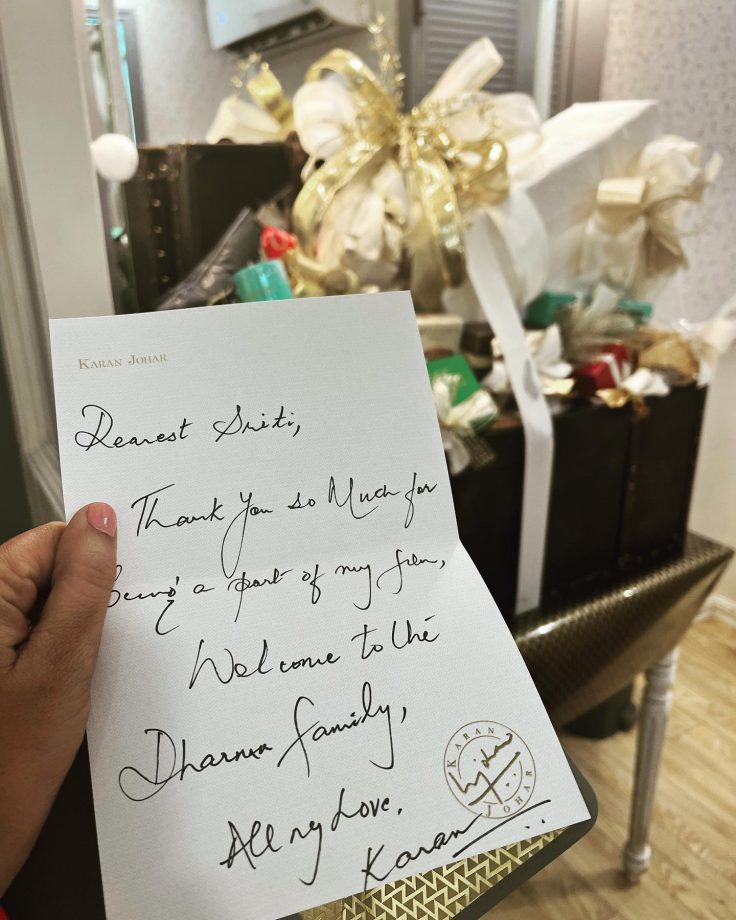 KARAN JOHAR
Dearest Sriti,
Thank you so Much for
being a part of my film,
Welcome to the
Dharma family,
All my Love,
KARAN JOHAR
Karan